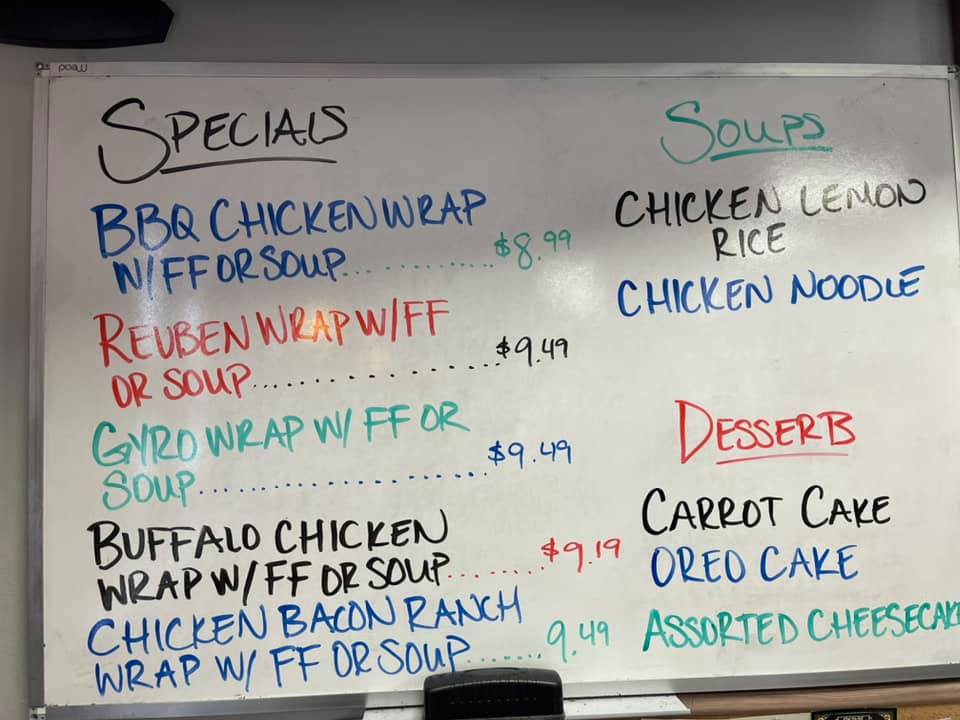 SPECIALS
BBQ CHICKEN WRAP
W/ FF OR SOUP............$8.99
REUBEN WRAP W/ FF
OR SOUP.................$9.49
GYRO WRAP W/ FF OR
SOUP.....................$9.49
BUFFALO CHICKEN
WRAP W/ FF OR SOUP........$9.19
CHICKEN BACON RANCH
WRAP W/ FF OR SOUP.......9.49
SOUPS
CHICKEN LEMON
RICE
CHICKEN NOODLE
DESSERTS
CARROT CAKE
OREO CAKE
ASSORTED CHEESECAKE